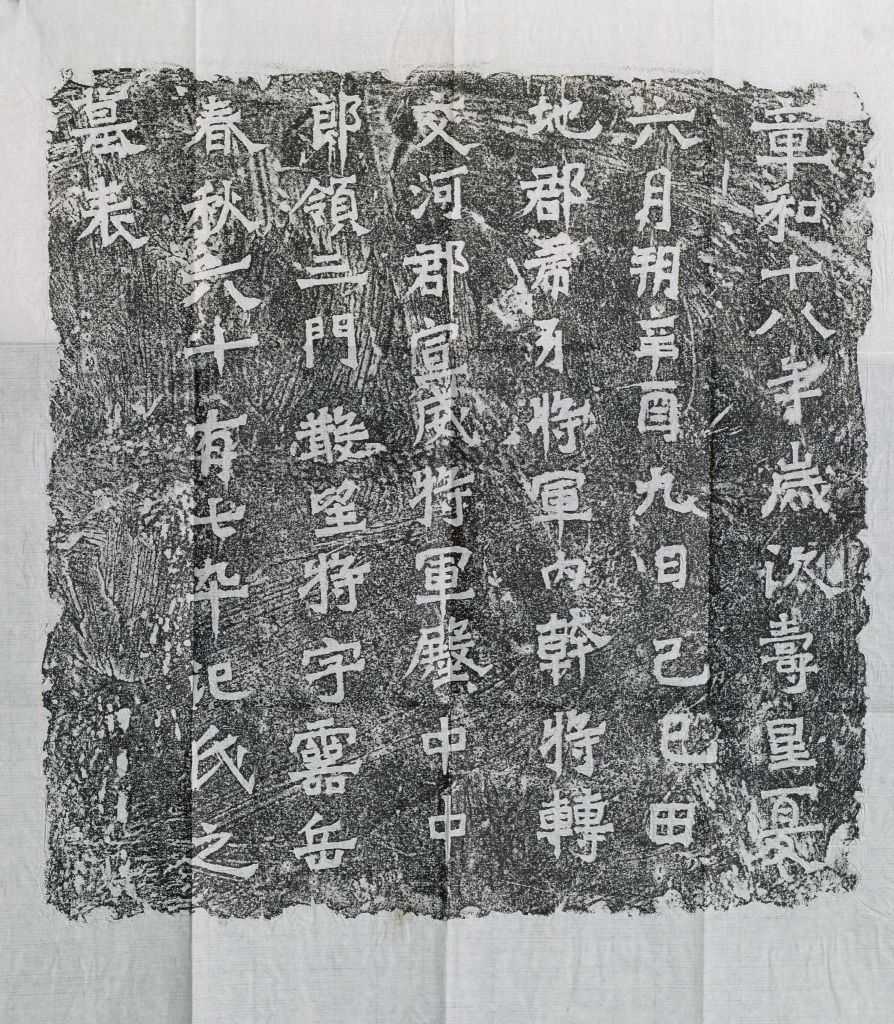 章和十八年歲次壽星夏
六月朔辛酉九日己巳田
地郡虎牙將軍內幹將轉
交河郡宣威將軍殿中中
郎領三門散望將字靈岳
春秋六十有七卒氾氏之
墓表